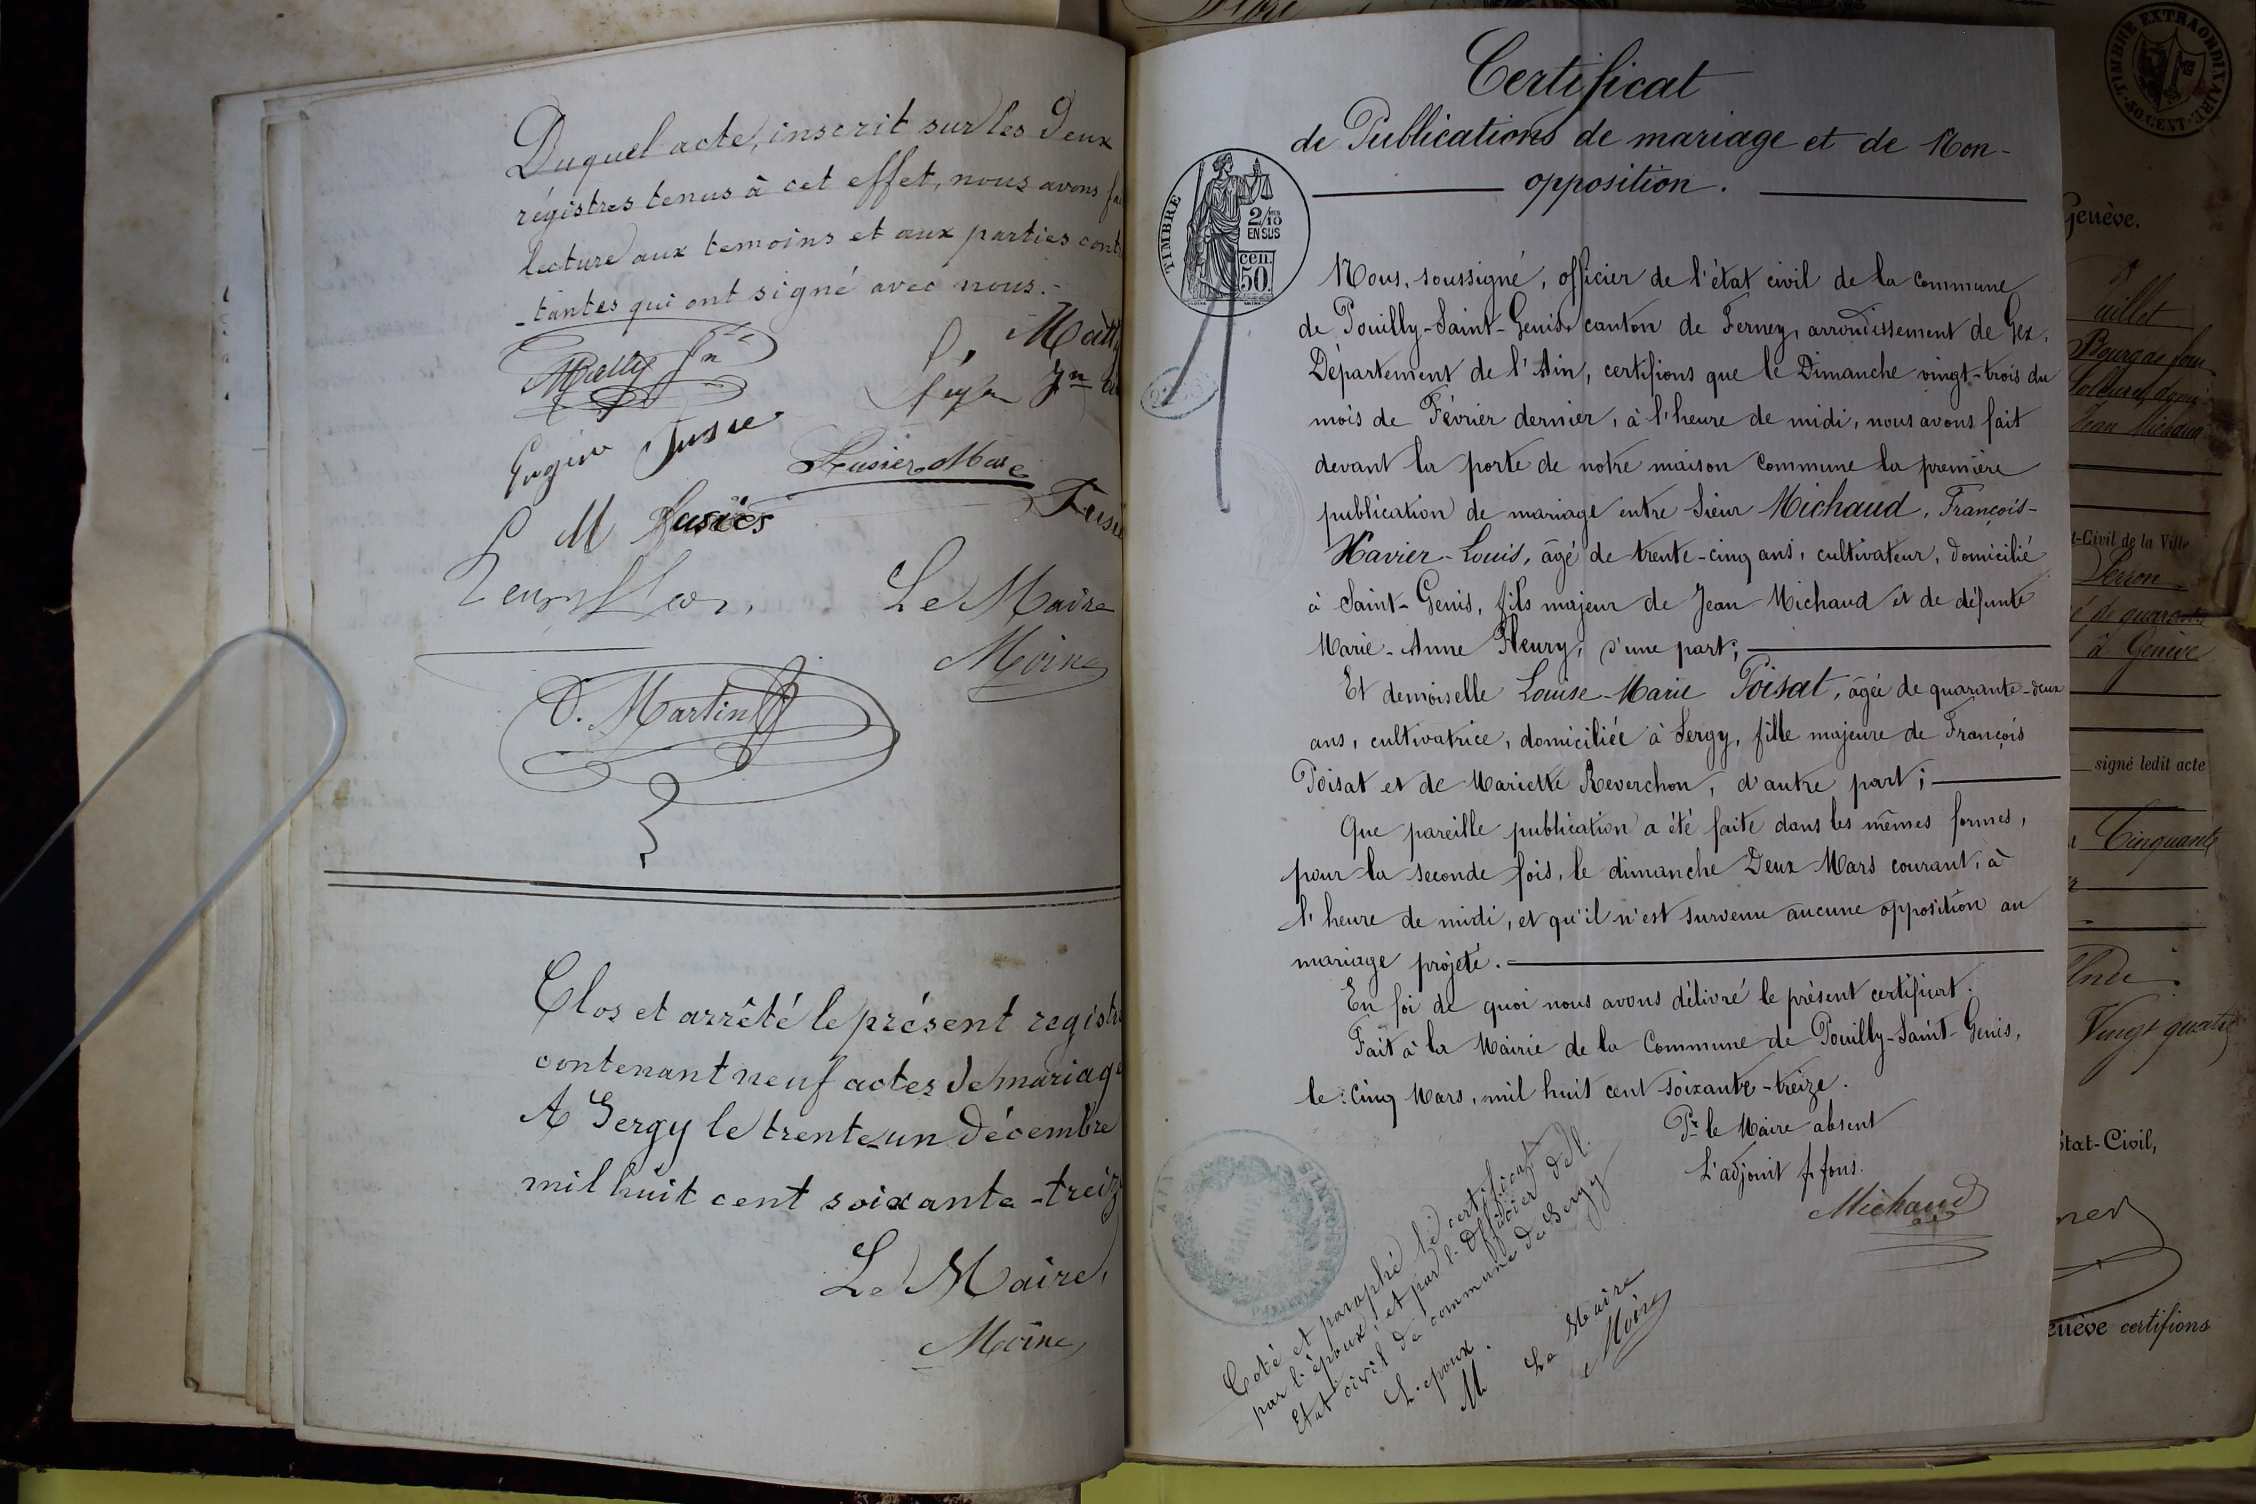 Duquel acte, inscrit sur les deux
régistres tenus à cet effet, nous avons
lecture aux temoins et aux parties cont
-tantes qui ont signé avec nous.-
Eugène Fusier
Fusier Marc
M Fusier
Le Maire
Moine
O. Martin
Clos et arrêté le présent regist
contenant neuf actes de mariage
A Sergy le trente-un décembre
mil huit cent soixante-treiz
Le Maire,
Moine
Certificat
de Publications de mariage et de Non-
opposition.
TIMBRE
2/10
EN SUS
CEN.
50.
Nous, soussigné, officier de l'état civil de la commune
de Pouilly-Saint-Genis, canton de Ferney, arrondissement de Gex,
Département de l'Ain, certifions que le Dimanche vingt-trois du
mois de Février dernier, à l'heure de midi, nous avons fait
devant la porte de notre maison commune la première
publication de mariage entre Sieur Michaud, François-
Xavier-Louis, âgé de trente-cinq ans, cultivateur, domicilié
à Saint-Genis, fils majeur de Jean Michaud et de défunte
Marie-Anne Fleury, d'une part;
Et demoiselle Louise-Marie Poisat, âgée de quarante-deux
ans, cultivatrice, domiciliée à Sergy, fille majeure de François
Poisat et de Mariette Reverchon, d'autre part;
Que pareille publication a été faite dans les mêmes formes,
pour la seconde fois, le dimanche Deux Mars courant, à
l'heure de midi, et qu'il n'est survenu aucune opposition au
mariage projeté.
En foi de quoi nous avons délivré le présent certificat.
Fait à la Mairie de la Commune de Pouilly-Saint-Genis,
le cinq Mars, mil huit cent soixante-treize.
Pr le Maire absent
L'adjoint f. fons.
Michaud
Coté et paraphé le certificat
par l'époux, et par l'Officier de l'
Etat civil de la commune de Sergy
L'epoux. Le Maire
M Moine
TIMBRE EXTRAORDINAIRE
50 CENT.
Genève.
Juillet
Bourg de four
Jean Michaud
t-Civil de la Ville
Perron
é de quarante
à Genève
signé ledit acte
Cinquante
Vingt quatre
État-Civil,
enève certifions